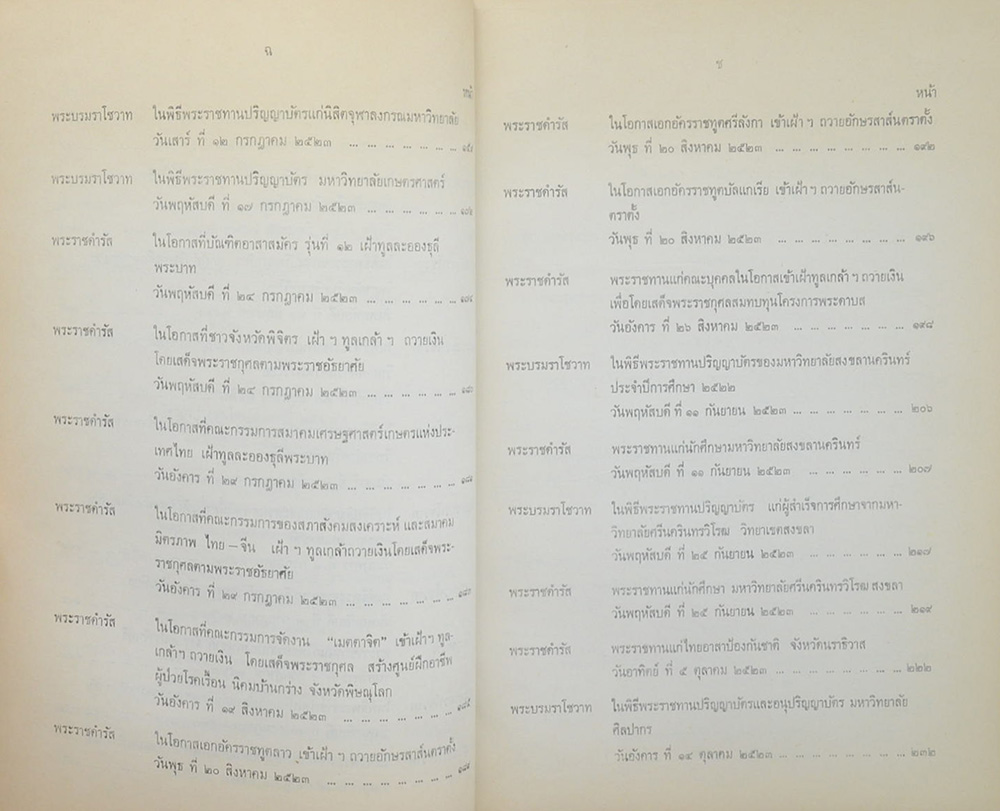 ฉ
หน้า
พระบรมราโชวาท ในพิธีพระราชทานปริญญาบัตรแก่นิสิตจุฬาลงกรณมหาวิทยาลัย
วันเสาร์ ที่ ๑๒ กรกฎาคม ๒๕๒๓ ... ... ... ... ... ...
พระบรมราโชวาท ในพิธีพระราชทานปริญญาบัตร มหาวิทยาลัยเกษตรศาสตร์
วันพฤหัสบดี ที่ ๑๗ กรกฎาคม ๒๕๒๓ ... ... ... ... ...
พระราชดำรัส ในโอกาสที่บัณฑิตอาสาสมัคร รุ่นที่ ๑๒ เฝ้าทูลละอองธุลี
พระบาท
วันพฤหัสบดี ที่ ๒๔ กรกฎาคม ๒๕๒๓ ... ... ... ... ...
พระราชดำรัส ในโอกาสที่ชาวจังหวัดพิจิตร เฝ้า ฯ ทูลเกล้า ฯ ถวายเงิน
โดยเสด็จพระราชกุศลตามพระราชอัธยาศัย
วันพฤหัสบดี ที่ ๒๔ กรกฎาคม ๒๕๒๓ ... ... ... ... ...
พระราชดำรัส ในโอกาสที่คณะกรรมการสมาคมเศรษฐศาสตร์เกษตรแห่งประ-
เทศไทย เฝ้าทูลละอองธุลีพระบาท
วันอังคาร ที่ ๒๙ กรกฎาคม ๒๕๒๓ ... ... ... ... ... ...
พระราชดำรัส ในโอกาสที่คณะกรรมการของสภาสังคมสงเคราะห์ และสมาคม
มิตรภาพ ไทย – จีน เฝ้า ฯ ทูลเกล้าถวายเงินโดยเสด็จพระ-
ราชกุศลตามพระราชอัธยาศัย
วันอังคาร ที่ ๒๙ กรกฎาคม ๒๕๒๓ ... ... ... ... ... ...
พระราชดำรัส ในโอกาสที่คณะกรรมการจัดงาน “เมตตาจิต” เข้าเฝ้าฯ ทูล-
เกล้าฯ ถวายเงิน โดยเสด็จพระราชกุศล สร้างศูนย์ฝึกอาชีพ
ผู้ป่วยโรคเรื้อน นิคมบ้านกร่าง จังหวัดพิษณุโลก
วันอังคาร ที่ ๑๙ สิงหาคม ๒๕๒๓ ... ... ... ... ... ...
พระราชดำรัส ในโอกาสเอกอัครราชทูตลาว เข้าเฝ้า ฯ ถวายอักษรสาส์นตราตั้ง
วันพุธ ที่ ๒๐ สิงหาคม ๒๕๒๓ ... ... ... ... ... ... ...
ช
หน้า
พระราชดำรัส ในโอกาสเอกอัครราชทูตศรีลังกา เข้าเฝ้า ฯ ถวายอักษรสาส์นตราตั้ง
วันพุธ ที่ ๒๐ สิงหาคม ๒๕๒๓ ... ... ... ... ... ... ... ๑๙๒
พระราชดำรัส ในโอกาสเอกอัครราชทูตบัลแกเรีย เข้าเฝ้า ฯ ถวายอักษรสาส์น-
ตราตั้ง
วันพุธ ที่ ๒๐ สิงหาคม ๒๕๒๓ ... ... ... ... ... ... ... ๑๙๖
พระราชดำรัส พระราชทานแก่คณะบุคคลในโอกาสเข้าเฝ้าทูลเกล้า ฯ ถวายเงิน
เพื่อโดยเสด็จพระราชกุศลสมทบทุนโครงการพระดาบส
วันอังคาร ที่ ๒๖ สิงหาคม ๒๕๒๓ ... ... ... ... ... ... ๑๙๘
พระบรมราโชวาท ในพิธีพระราชทานปริญญาบัตรของมหาวิทยาลัยสงขลานครินทร์
ประจำปีการศึกษา ๒๕๒๒
วันพฤหัสบดี ที่ ๑๑ กันยายน ๒๕๒๓ ... ... ... ... ... ... ๒๐๖
พระราชดำรัส พระราชทานแก่นักศึกษามหาวิทยาลัยสงขลานครินทร์
วันพฤหัสบดี ที่ ๑๑ กันยายน ๒๕๒๓ ... ... ... ... ... ๒๐๗
พระบรมราโชวาท ในพิธีพระราชทานปริญญาบัตร แก่ผู้สำเร็จการศึกษาจากมหา-
วิทยาลัยศรีนครินทรวิโรฒ วิทยาเขตสงขลา
วันพฤหัสบดี ที่ ๒๕ กันยายน ๒๕๒๓ ... ... ... ... ... ๒๑๗
พระราชดำรัส พระราชทานแก่นักศึกษา มหาวิทยาลัยศรีนครินทรวิโรฒ สงขลา
วันพฤหัสบดี ที่ ๒๕ กันยายน ๒๕๒๓ ... ... ... ... ... ๒๑๙
พระราชดำรัส พระราชทานแก่ไทยอาสาป้องกันชาติ จังหวัดนราธิวาส
วันอาทิตย์ ที่ ๕ ตุลาคม ๒๕๒๓ ... ... ... ... ... ... ... ๒๒๒
พระบรมราโชวาท ในพิธีพระราชทานปริญญาบัตรและอนุปริญญาบัตร มหาวิทยาลัย
ศิลปากร
วันอังคาร ที่ ๑๔ ตุลาคม ๒๕๒๓ ... ... ... ... ... ... ... ๒๓๒